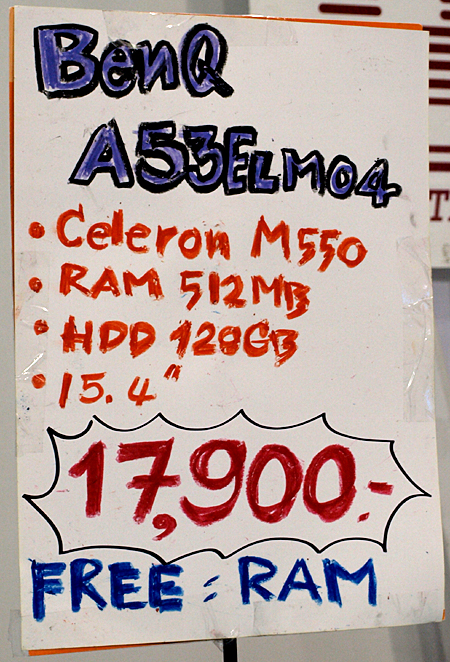 BenQ
A53ELM04
• Celeron M550
• RAM 512MB
• HDD 120GB
• 15.4"
17,900.-
FREE : RAM